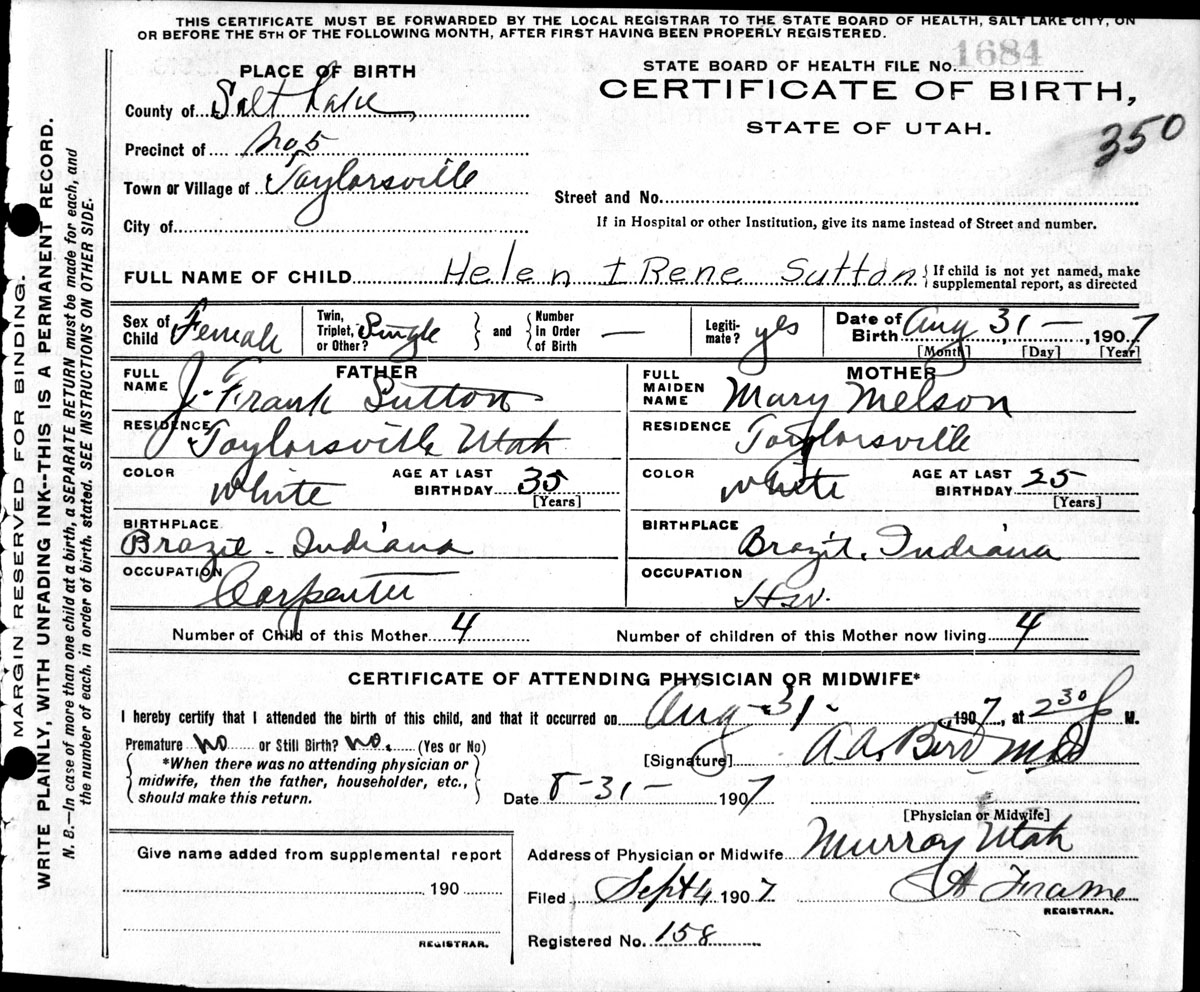 THIS CERTIFICATE MUST BE FORWARDED BY THE LOCAL REGISTRAR TO THE STATE BOARD OF HEALTH, SALT LAKE CITY, ON
OR BEFORE THE 5TH OF THE FOLLOWING MONTH, AFTER FIRST HAVING BEEN PROPERLY REGISTERED.
MARGIN RESERVED FOR BINDING.
WRITE PLAINLY, WITH UNFADING INK--THIS IS A PERMANENT RECORD.
N. B.—In case of more than one child at a birth, a SEPARATE RETURN must be made for each, and
the number of each. in order of birth. stated. SEE INSTRUCTIONS ON OTHER SIDE.
PLACE OF BIRTH
County of Salt Lake
Precinct of No 5
Town or Village of Taylorsville
City of
STATE BOARD OF HEALTH FILE NO. 1684
CERTIFICATE OF BIRTH,
STATE OF UTAH.
350
Street and No.
If in Hospital or other Institution, give its name instead of Street and number.
FULL NAME OF CHILD Helen IRene Sutton { If child is not yet named, make
supplemental report, as directed
Sex of Child Female
Twin, Triplet, or Other? Single
and { Number in Order of Birth —
Legiti-mate? yes
Date of Birth Aug 31 —, 1907
[Month] [Day] [Year]
FATHER
FULL NAME J. Frank Sutton
RESIDENCE Taylorsville Utah
COLOR White AGE AT LAST BIRTHDAY 35 [Years]
BIRTHPLACE Brazil - Indiana
OCCUPATION Carpenter
MOTHER
FULL MAIDEN NAME Mary Melson
RESIDENCE Taylorsville
COLOR White AGE AT LAST BIRTHDAY 25 [Years]
BIRTHPLACE Brazil, Indiana
OCCUPATION H.W.
Number of Child of this Mother 4 Number of children of this Mother now living 4
CERTIFICATE OF ATTENDING PHYSICIAN OR MIDWIFE*
I hereby certify that I attended the birth of this child, and that it occurred on Aug - 31 -, 1907, at 2 30 P M.
Premature no or Still Birth? no. (Yes or No)
*When there was no attending physician or
midwife, then the father, householder, etc.,
should make this return.
[Signature] A.A. Bird M.D.
Date 8-31- 1907
[Physician or Midwife]
Give name added from supplemental report
190
REGISTRAR.
Address of Physician or Midwife Murray Utah
Filed Sept 4 1907 Frame
REGISTRAR.
Registered No. 158